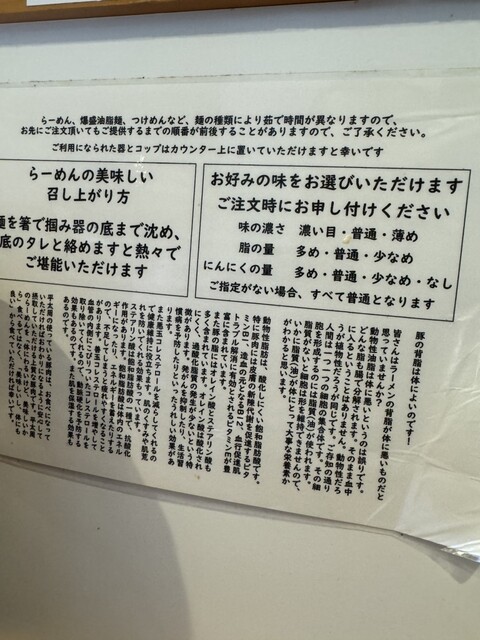 らーめん、爆盛油脂麺、つけめんなど、麺の種類により茹で時間が異なりますので、
お先にご注文頂いてもご提供するまでの順番が前後することがありますので、ご了承ください。
ご利用になられた器とコップはカウンター上に置いていただけますと幸いです
らーめんの美味しい
召し上がり方
麺を箸で掴み器の底まで沈め、
底のタレと絡めますと熱々で
ご堪能いただけます
お好みの味をお選びいただけます
ご注文時にお申し付けください
味の濃さ 濃い目・普通・薄め
脂の量 多め・普通・少なめ
にんにくの量 多め・普通・少なめ・なし
ご指定がない場合、すべて普通となります
豚の背脂は体によいのです！
皆さんはラーメンの背脂が体に悪いものだと
思っていませんか？
動物性油脂は体に悪いというのは誤りです。
どんな脂も腸で分解されます。そのまま血中
に入るということはありません。動物性だろ
うが植物性だろうが同じです。ご存知の通り
人間は一つ一つの細胞の集合体です。その細
胞を形成するのには脂質(油)が使われます。
脂質がないと細胞は形を維持できませんので、
いかに脂質(油)が体にとって大事な栄養素か
がわかると思います。
動物性脂肪は、酸化しにくい飽和脂肪酸です。
特に豚肉には皮膚の新陳代謝を促すビタ
ミンB1、造血の元となるB12、血行促進肌
トラブル解消に有効とされるビタミンEが豊
富に含まれています。
また豚の脂にはオレイン酸とステアリン酸も
多く含まれています。オレイン酸は酸化され
にくく過酸化脂質の発生が少ないという特
徴があります。発がんを抑制したり、生活習
慣病を予防したりといったうれしい効果があ
ります。
また悪玉コレステロールを減らしてくれるの
で健康維持に役立ちます。肌のくすみや肌荒
れを防いでくれる効果もあります。
ステアリン酸は飽和脂肪酸の一種で、抗酸化
作用があります。飽和脂肪酸は体内のエネル
ギーになり、
ので、不足してしまうと疲れやすくなったり
血管の内側につく悪玉コレステロールを増やして
取り除いてくれるので、動脈硬化を予防する
効果もあるのです。